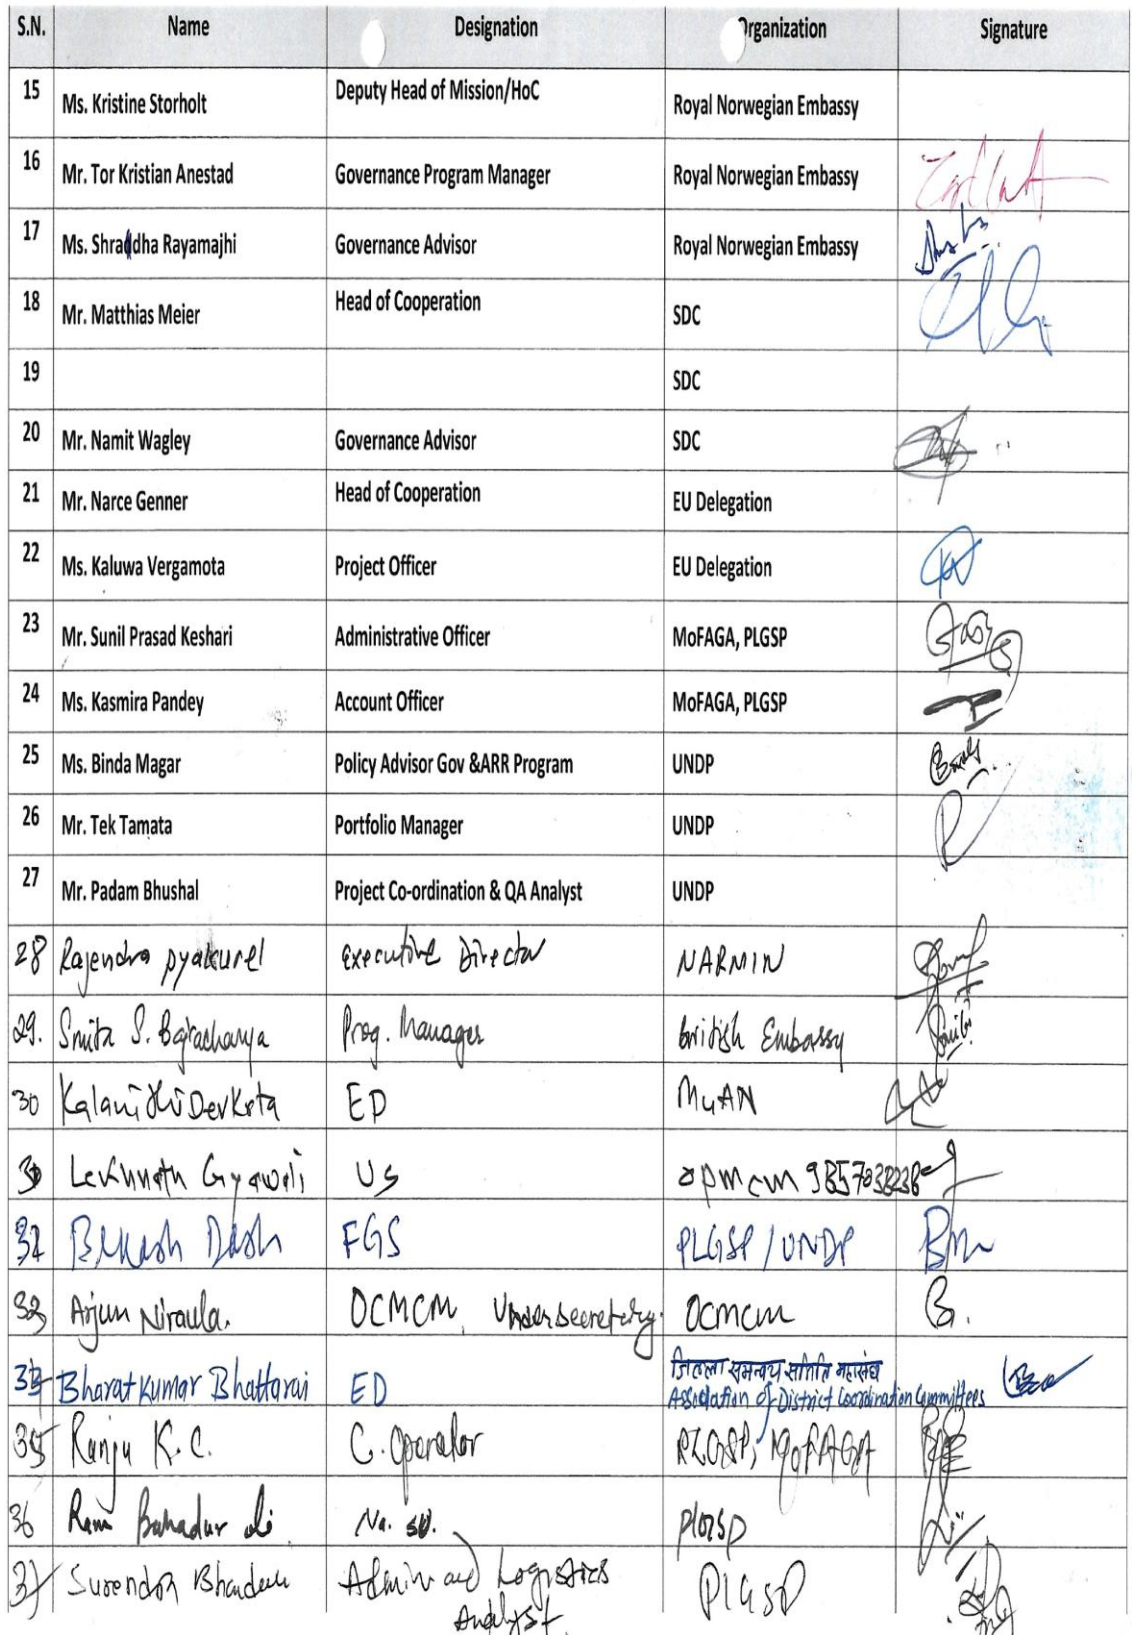 S.N. Name Designation Organization Signature
15 Ms. Kristine Storholt Deputy Head of Mission/HoC Royal Norwegian Embassy
16 Mr. Tor Kristian Anestad Governance Program Manager Royal Norwegian Embassy
17 Ms. Shraddha Rayamajhi Governance Advisor Royal Norwegian Embassy
18 Mr. Matthias Meier Head of Cooperation SDC
19 SDC
20 Mr. Namit Wagley Governance Advisor SDC
21 Mr. Narce Genner Head of Cooperation EU Delegation
22 Ms. Kaluwa Vergamota Project Officer EU Delegation
23 Mr. Sunil Prasad Keshari Administrative Officer MoFAGA, PLGSP
24 Ms. Kasmira Pandey Account Officer MoFAGA, PLGSP
25 Ms. Binda Magar Policy Advisor Gov &ARR Program UNDP
26 Mr. Tek Tamata Portfolio Manager UNDP
27 Mr. Padam Bhushal Project Co-ordination & QA Analyst UNDP
28 Rajendra Pyakurel Executive Director NARMIN
29. Smita S. Bajracharya Prog. Manager British Embassy
30 Kalanidhi Devkota ED MuAN
Lekhnath Gyawali US opmcm
32 Bikash Dash FGS PLGSP/UNDP
33 Arjun Niraula. OCMCM, Undersecretary. OCMCM
Bharat Kumar Bhattarai ED जिल्ला समन्वय समिति महासंघ
Association of District Coordination Committees
35 Ranju K.C. C. Operator PLGSP, MoFAGA
36 Ram Bahadur Na. su. plgsp
37 Surendra Bhandari Admin and Logistics PLGSP
Analyst